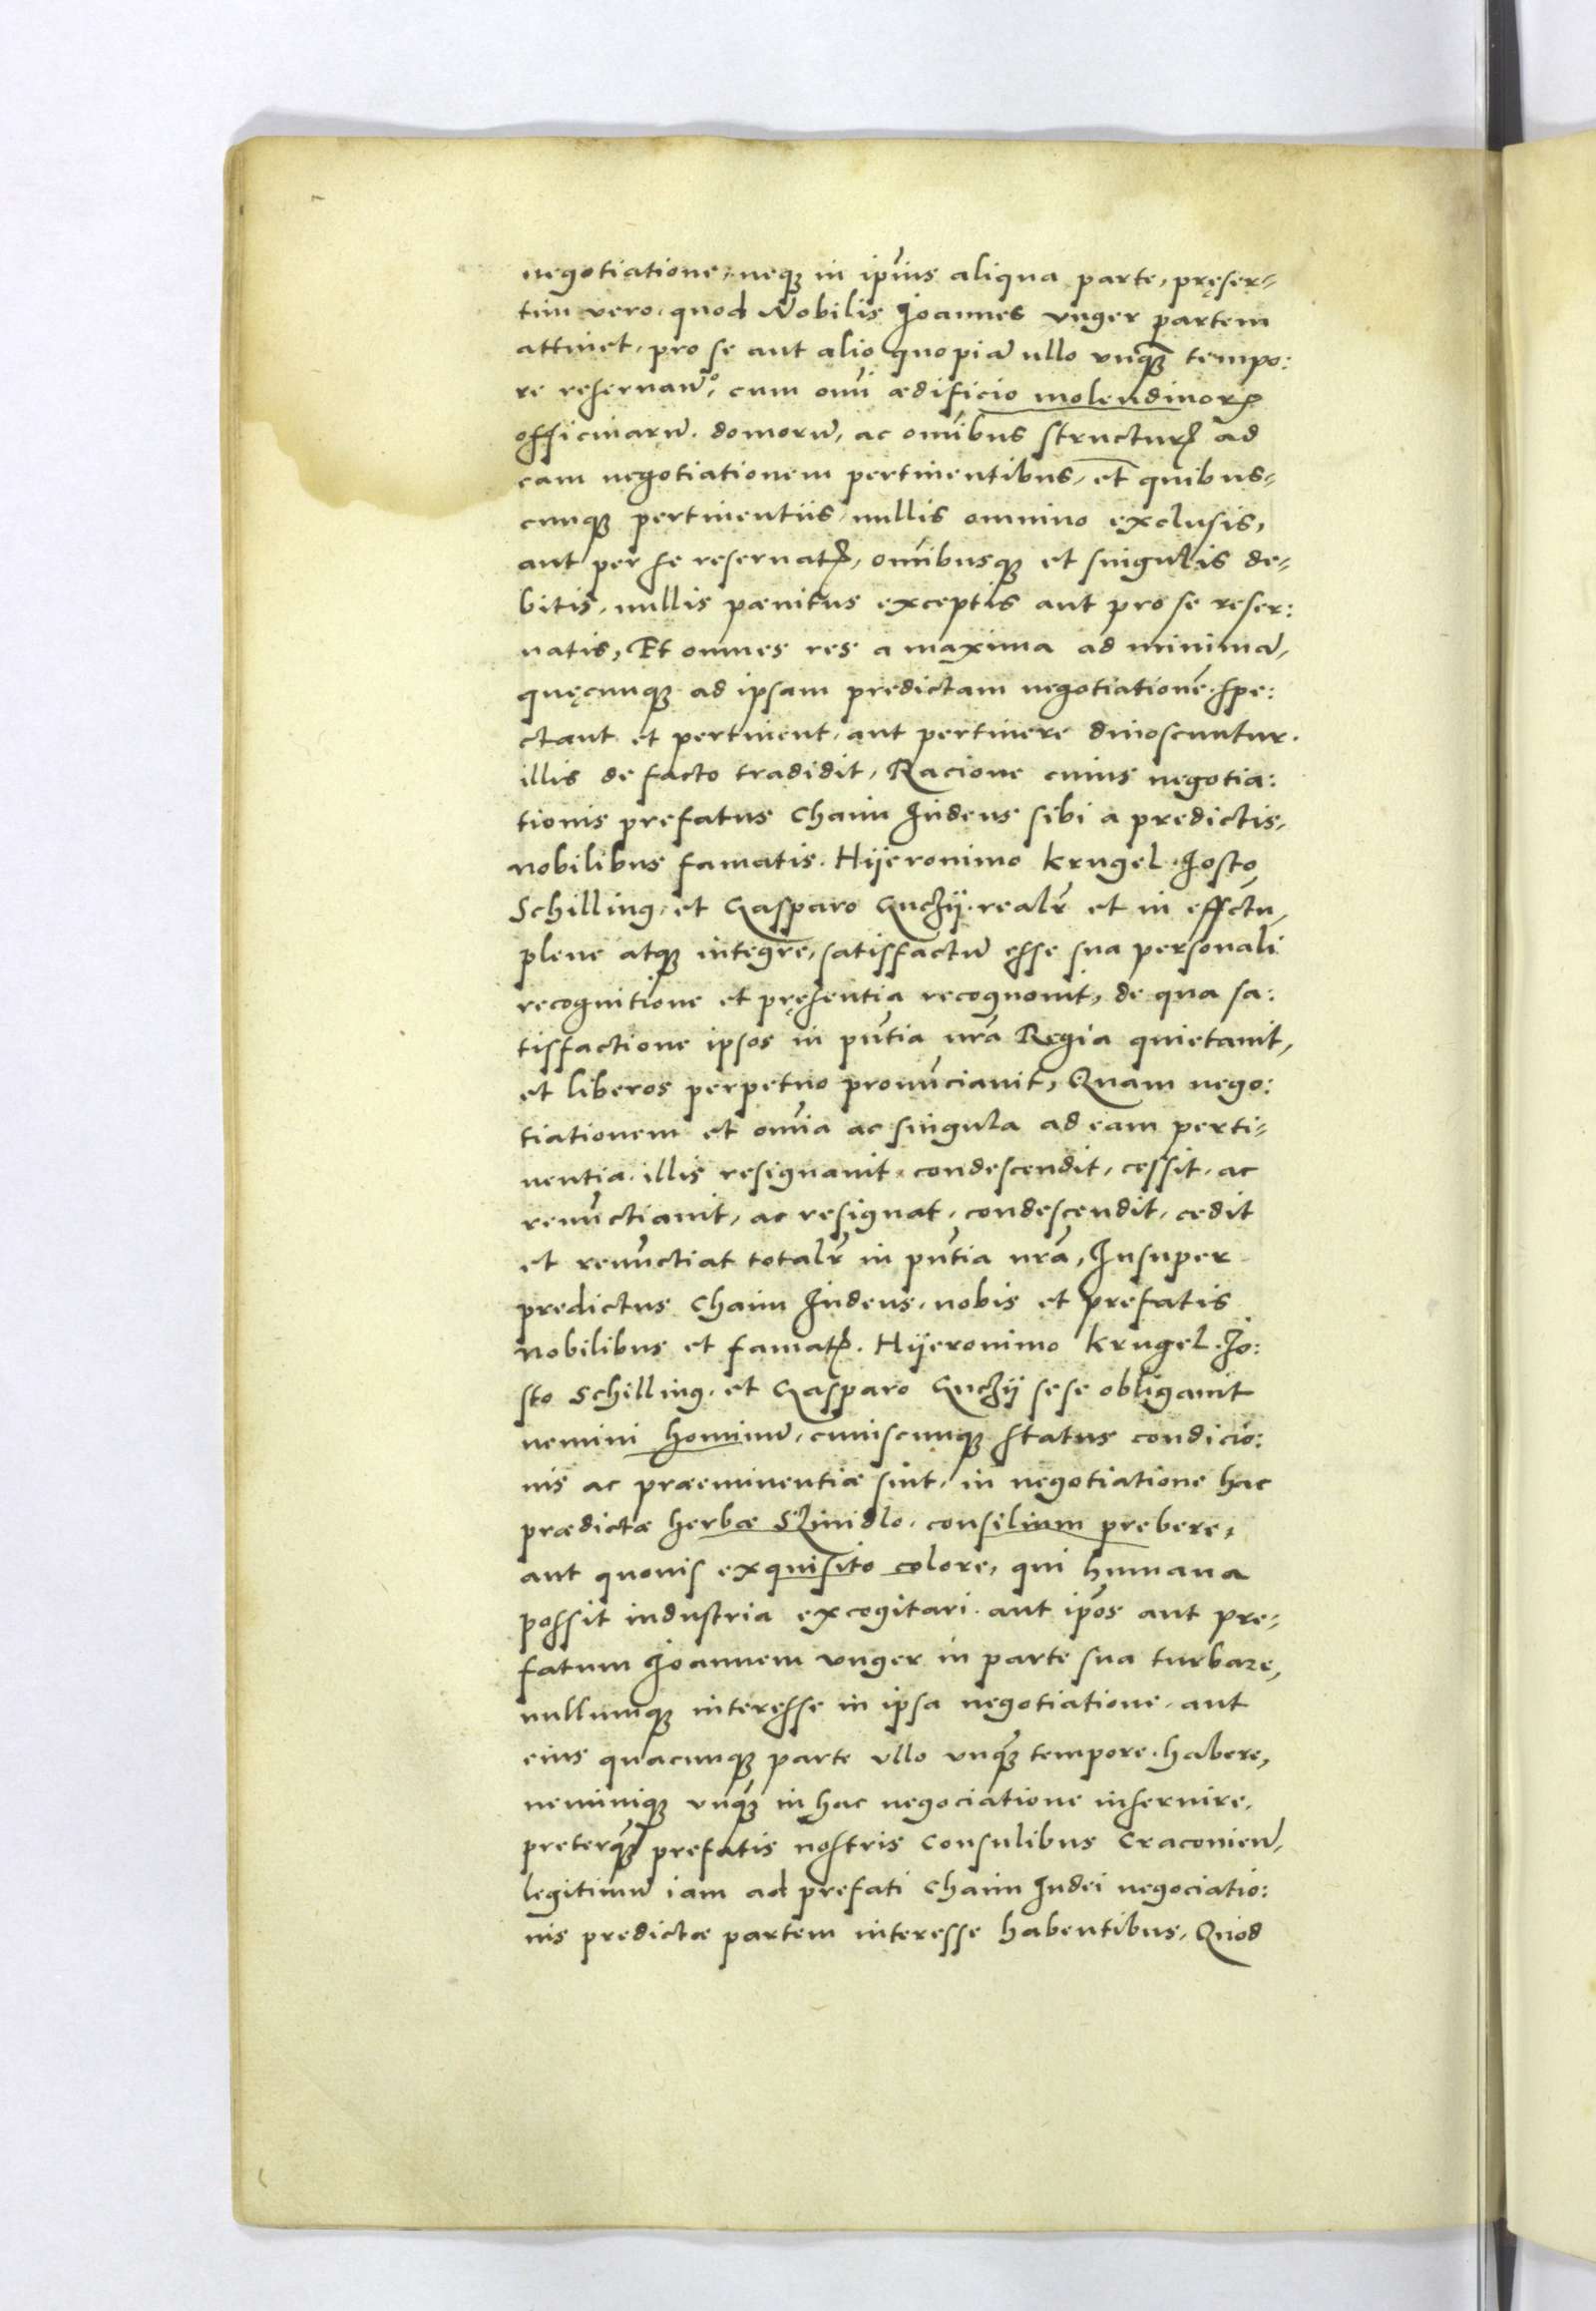 negotiatione, neqȝ in ip̄ius aliqua parte, pręser-
tim vero quod Nobilis Joannes vnger partem
attinet, pro se aut alio quopiā ullo vnq̄ȝ tempo:
re cum om̄i ædificio molendinorꝝ
officinarū. domorū, ac om̄ibus structurꝭ ad
eam negotiationem pertinentibus, et quibus-
cunqȝ pertinentiis, nullis omnino exclusis,
aut per se reseruatꝭ, om̄ibusqȝ et singulis de-
bitis, nullis pænitus exceptis aut pro se reser:
uatis, Et omnes res a maxima ad minimā,
quęcunqȝ ad ipsam predictam negotiationē spe:
ctant et pertinent, aut pertinere dinoscuntur.
illis de facto tradidit, Racione cuius negotia:
tionis prefatus Chaim Judeus sibi a predictis,
Nobilibus famatis. Hÿeronimo Krugel. Josto
Schilling, et Gasparo Guczÿ. realr̄ et in effctu,
plene atqȝ integre, satisfactū esse sua personali
recognitione et pręsentia recognouit, de qua sa:
tisfactione ipsos in pn̄tia nr̄a Regia quietauit,
et liberos perpetuo pronūciauit, Quam nego:
tiationem et om̄ia ac singula ad eam perti-
nentia. illis resignauit. condescendit, cessit, ac
renūctiauit, ac resignat, condescendit, cedit
et renūctiat totalr̄ in pn̄tia nr̄a, Insuper
predictus Chaim Judeus, nobis et prefatis
Nobilibus et famatꝭ. Hÿeronimo Krugel. Jo:
sto Schilling. et Gasparo Guczÿ sese obligauit
nemini hominū, cuiuscunqȝ status condicio:
nis ac præeminentiæ sint, in negotiatione hac
prædictæ herbæ consilium prebere,
aut quouis exquisito colore, qui humana
possit industria excogitari. aut ip̄os aut pre-
fatum Joannem vnger in parte sua turbare,
nullumqȝ interesse in ipsa negotiatione. aut
eius quacunqȝ parte vllo vnq̄ȝ tempore. habere,
neminiqȝ vnq̄ȝ in hac negociatione inseruire,
preterq̄ȝ prefatis nostris Consulibus Cracouien̄,
legitimū iam ad prefati Chaim Judei negociatio:
nis predictæ partem interesse habentibus, Quod